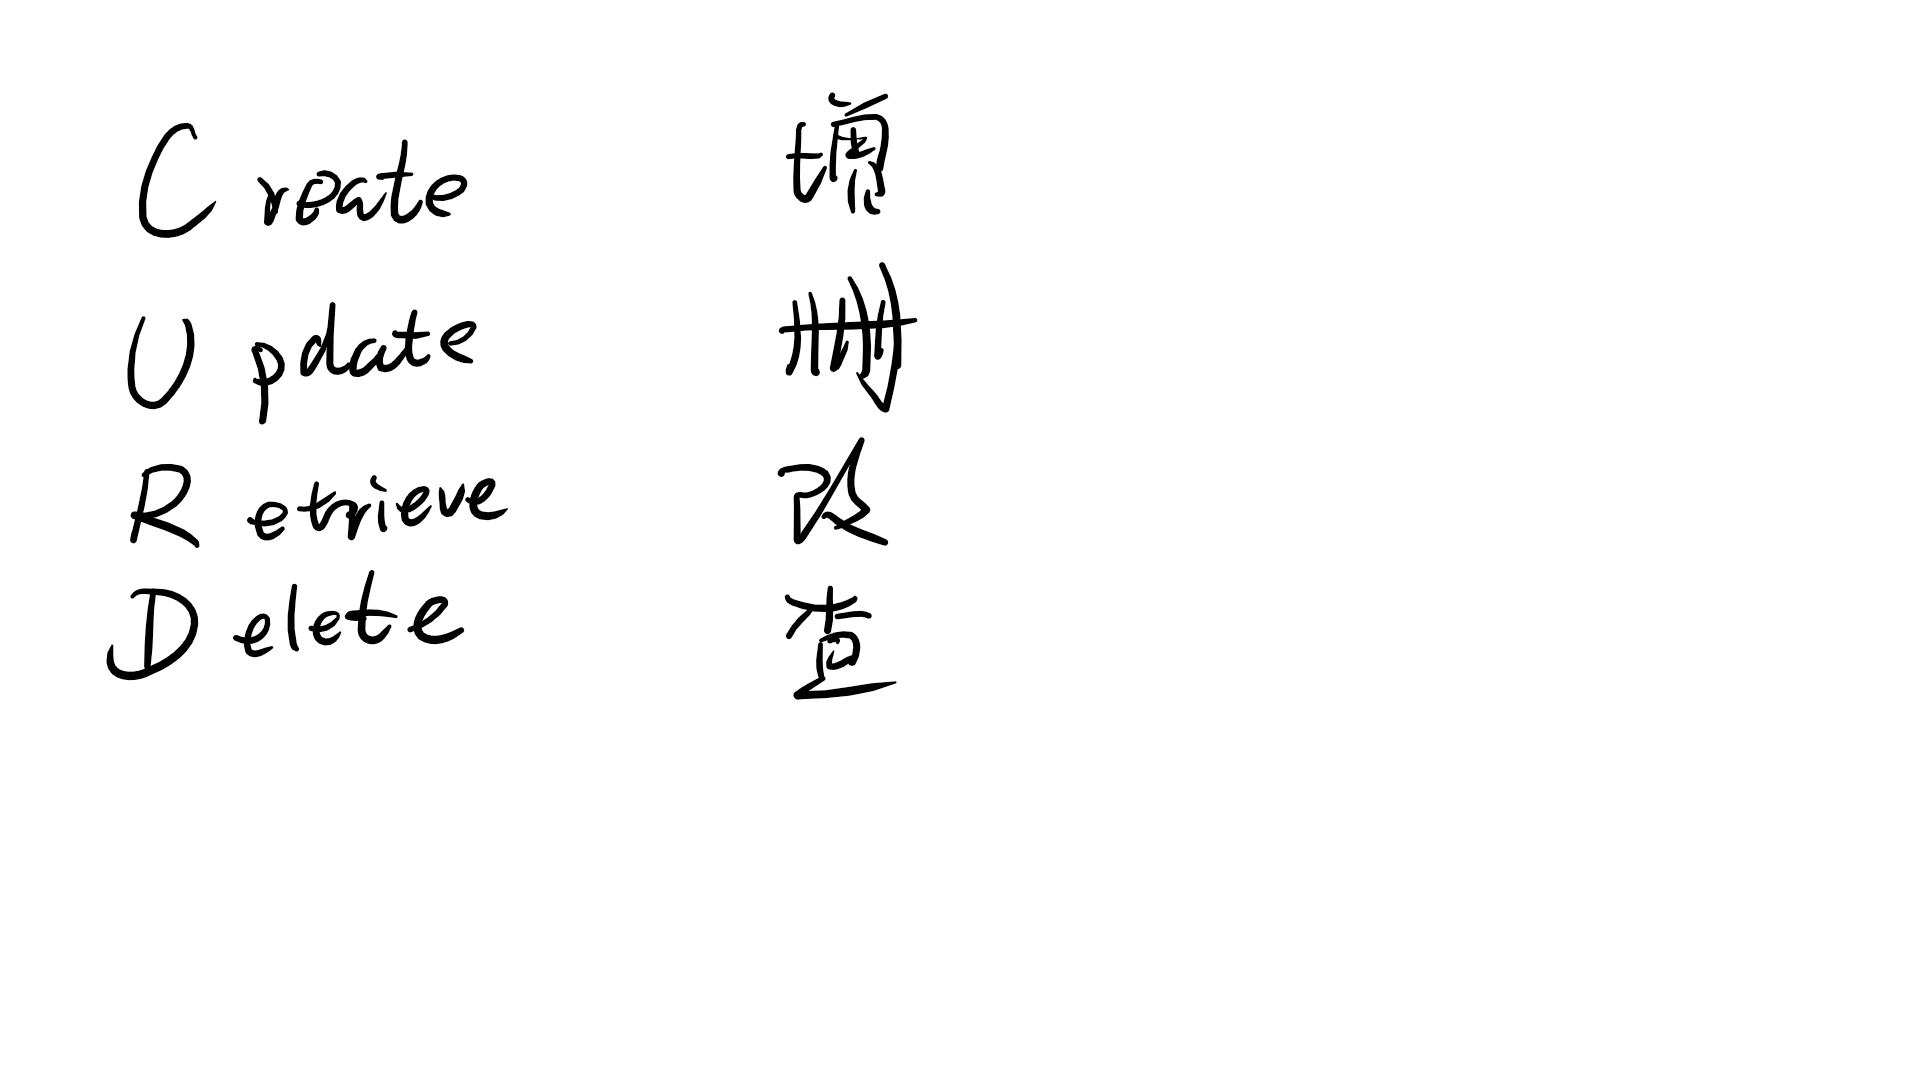 Create 增
Update 删
Retrieve 改
Delete 查